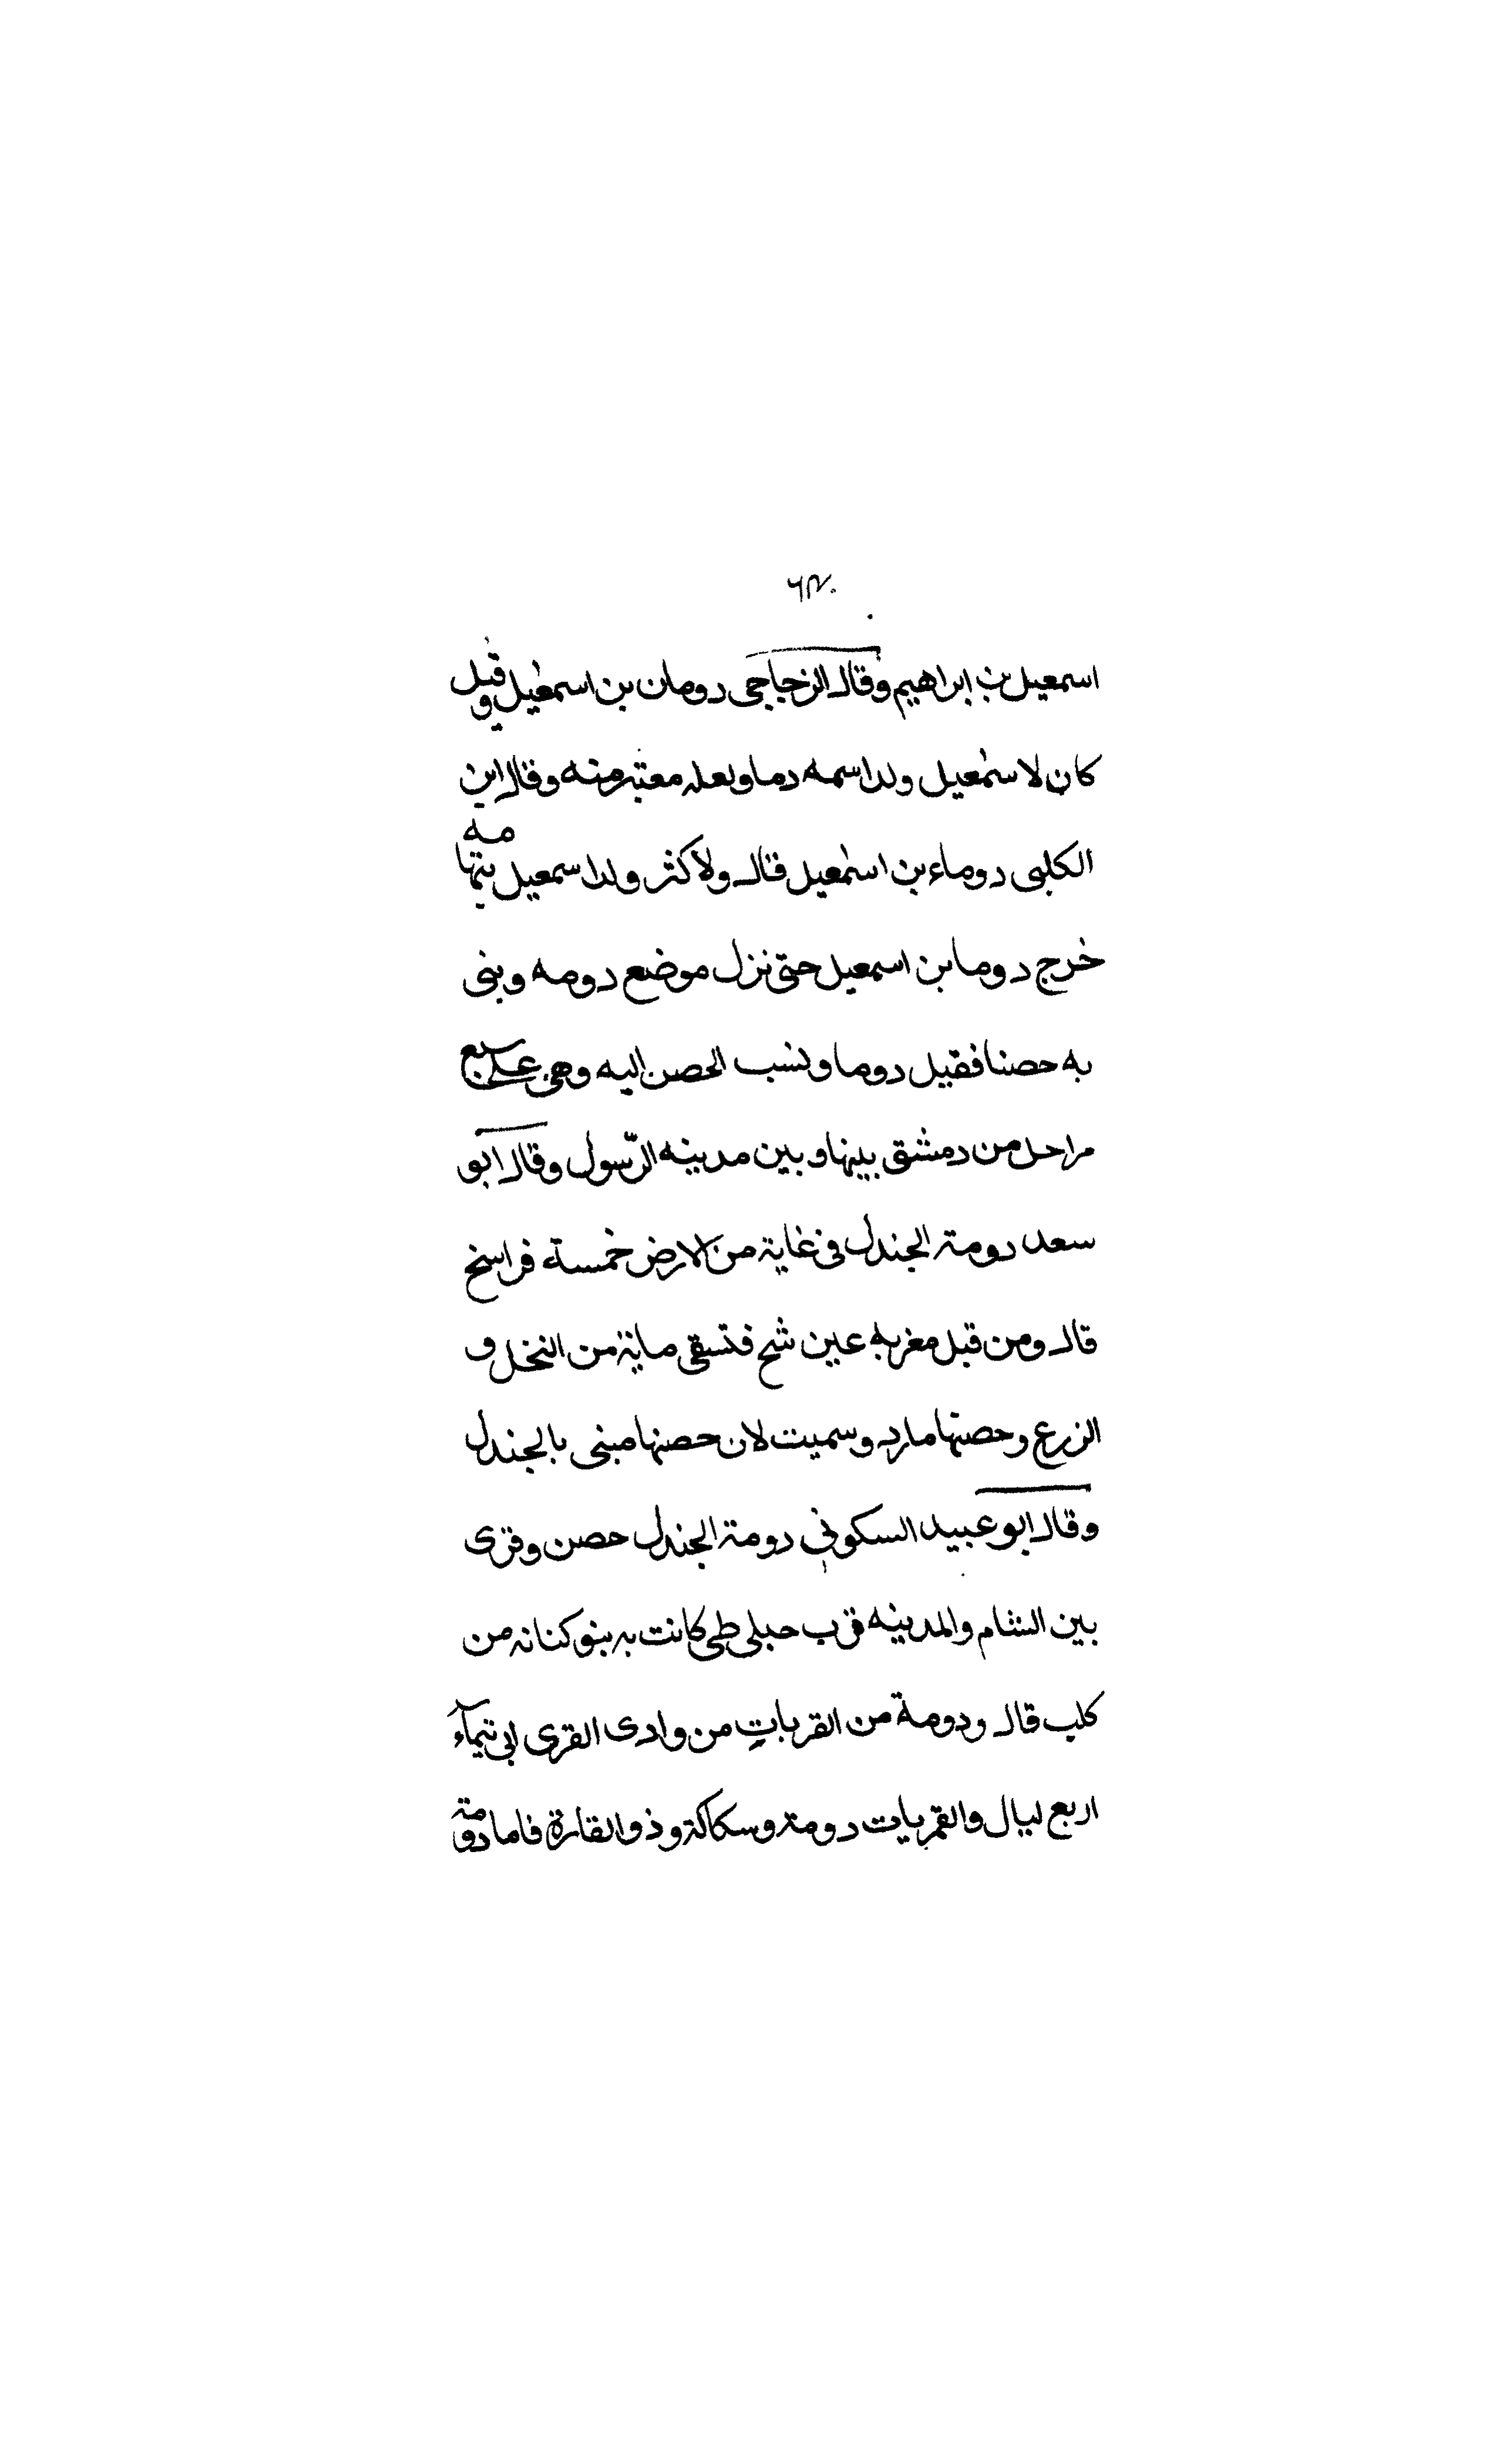 اسمعيل بن ابراهيم وقال الزجاجى دومان بن اسمعيل وقيل
كان لاسمعيل ولد اسمه دما ولعله معتبر منه وقال ابن
الكلبى دوماء بن اسمعيل قال ولا كثر ولد اسمعيل بتهامه
خرج دوما بن اسمعيل حتى نزل موضع دومه وبنى
به حصنا فقيل دوما ونسب الحصن اليه وهى على سبع
مراحل من دمشق بينها وبين مدينه الرّسول وقال ابو
سعد دومة الجندل فى غاية من الارض خمسة فراسخ
قال ومن قبل مغربه عين شح فتسقى ماية من النخل و
الزرع وحصنها مارد وسميت لان حصنها مبنى بالجندل
وقال ابو عبيد السكونى دومة الجندل حصن وقرى
بين الشام والمدينه قرب جبلى طى كانت به بنو كنانه من
كلب قال ودومة من القربات من وادى القرى الى تيمآء
اربع ليال والقريات دومة وسكاكة وذو القارة فاما دومة